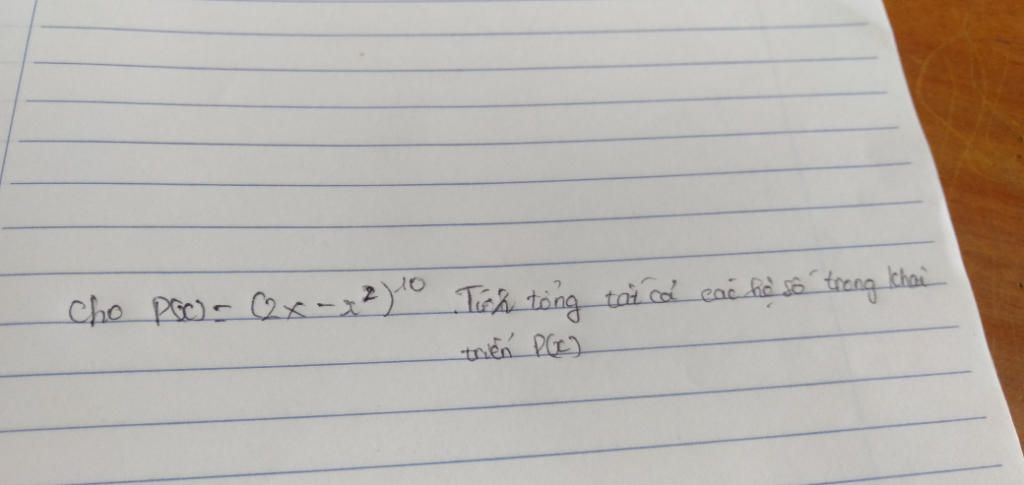 Cho P(x) = (2x - x²)¹⁰. Tính tổng tất cả các hệ số trong khai
triển P(x)